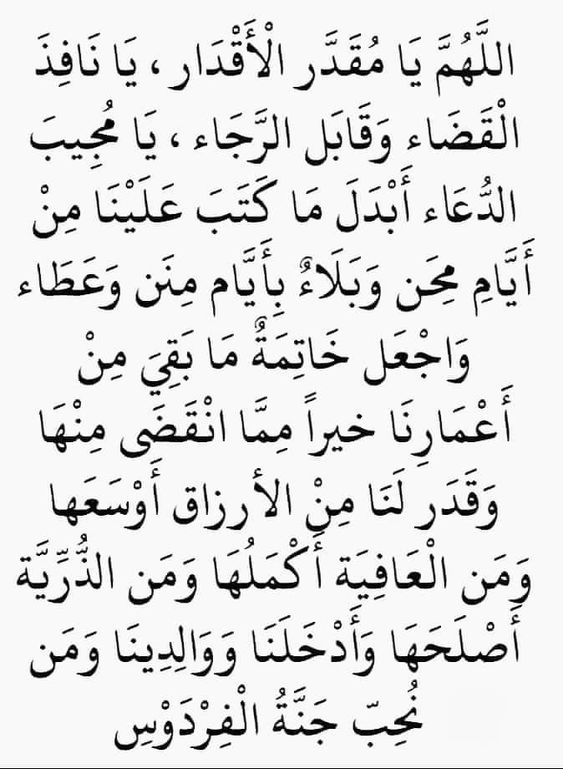 اللَّهُمَّ يَا مُقَدَّر الْأَقْدَار ، يَا نَافِذَ
الْقَضَاء وَقَابَل الرَّجَاء ، يَا مُجِيبَ
الدُّعَاء أَبْدَلَ مَا كَتَبَ عَلَيْنَا مِنْ
أَيَّامِ مِحَن وَبَلَاءٌ بِأَيَّام مِنَن وَعَطَاء
وَاجْعَل خَاتِمَةٌ مَا بَقِيَ مِنْ
أَعْمَارِنَا خيراً مِمَّا انْقَضَى مِنْهَا
وَقَدَر لَنَا مِنْ الأرزاق أَوْسَعَها
وَمَن الْعَافِيَة أَكْمَلُهَا وَمَن الذُّرِّيَّة
أَصْلَحَهَا وَأَدْخَلَنَا وَوَالِدِينَا وَمَن
نُحِبّ جَنَّةُ الْفِرْدَوْسِ